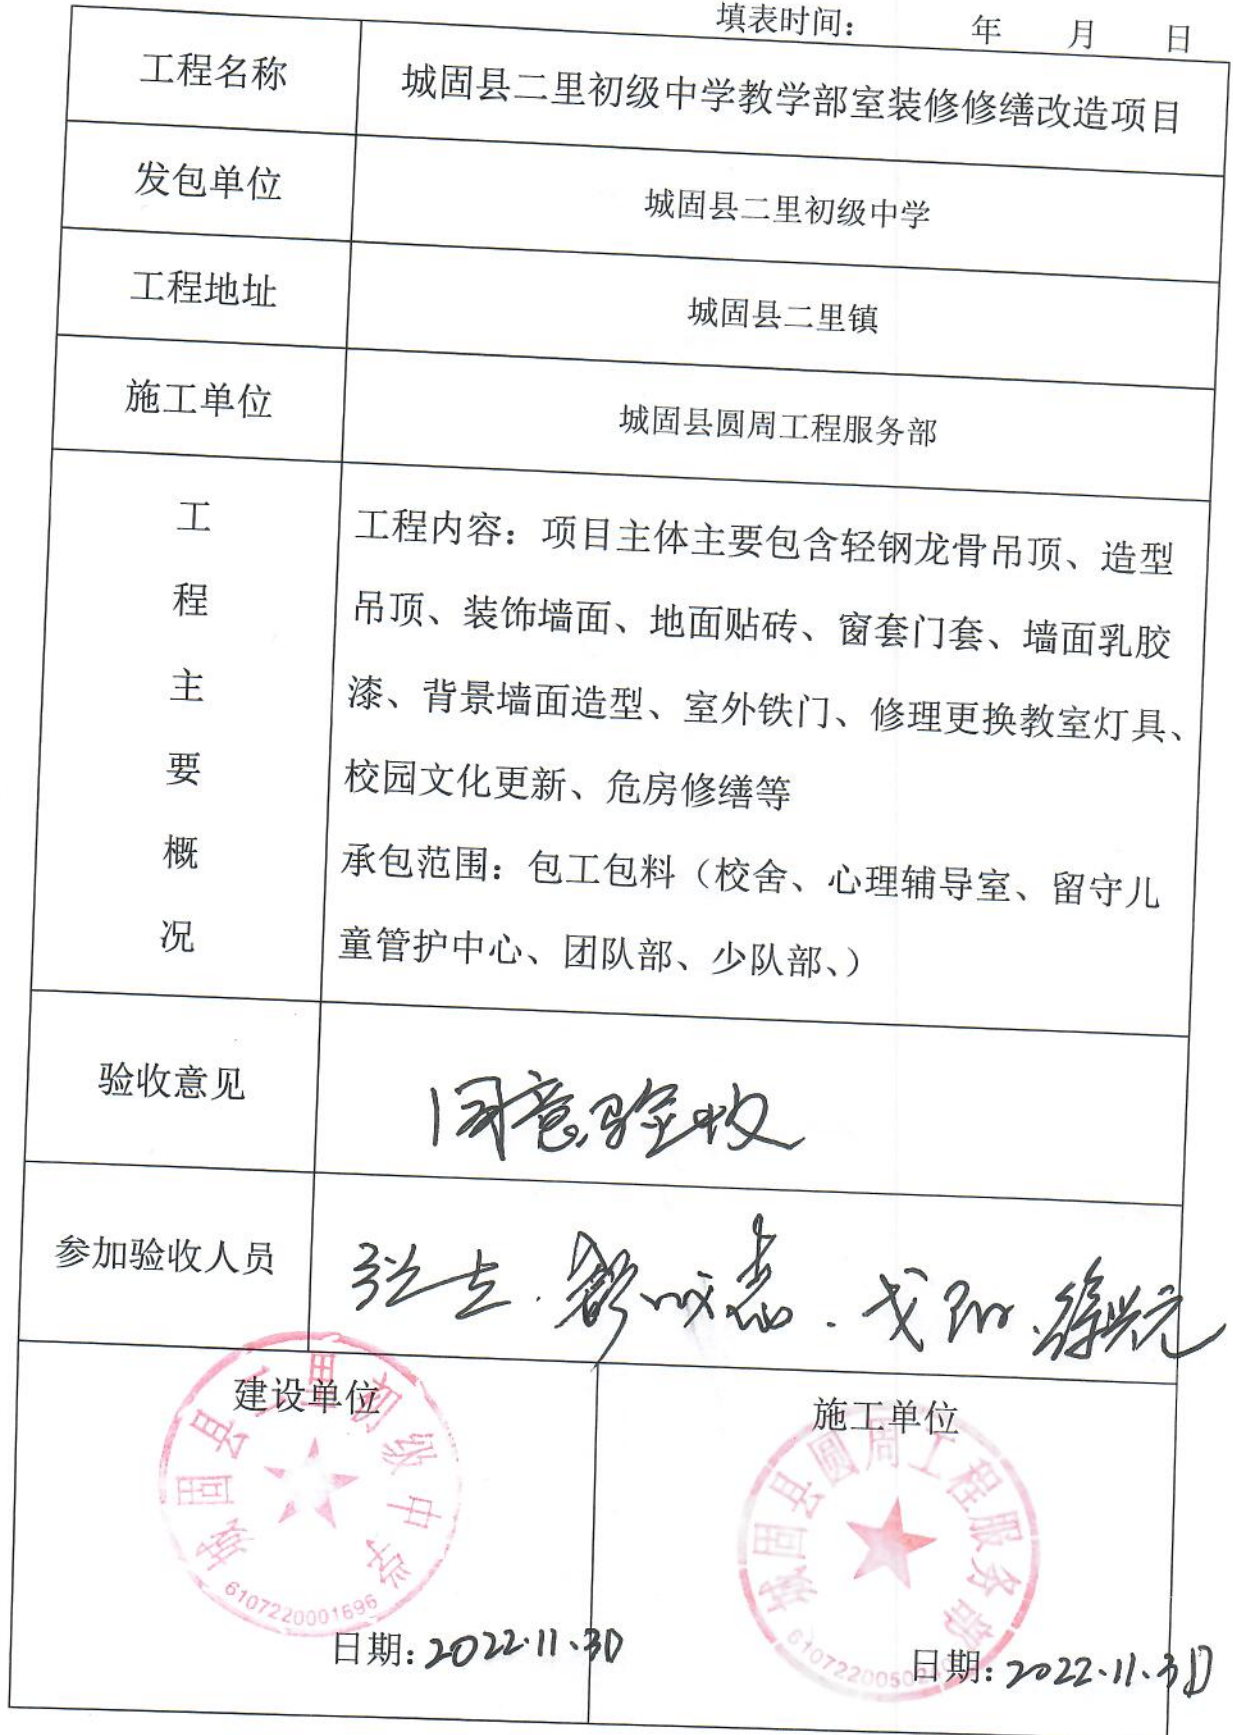 填表时间： 年 月 日
工程名称 城固县二里初级中学教学部室装修修缮改造项目
发包单位 城固县二里初级中学
工程地址 城固县二里镇
施工单位 城固县圆周工程服务部
工程主要概况
工程内容：项目主体主要包含轻钢龙骨吊顶、造型
吊顶、装饰墙面、地面贴砖、窗套门套、墙面乳胶
漆、背景墙面造型、室外铁门、修理更换教室灯具、
校园文化更新、危房修缮等
承包范围：包工包料（校舍、心理辅导室、留守儿
童管护中心、团队部、少队部、）
验收意见 同意验收
参加验收人员
建设单位
城固县二里初级中学
6107220001696
日期：2022.11.30
施工单位
城固县圆周工程服务部
日期：2022.11.30